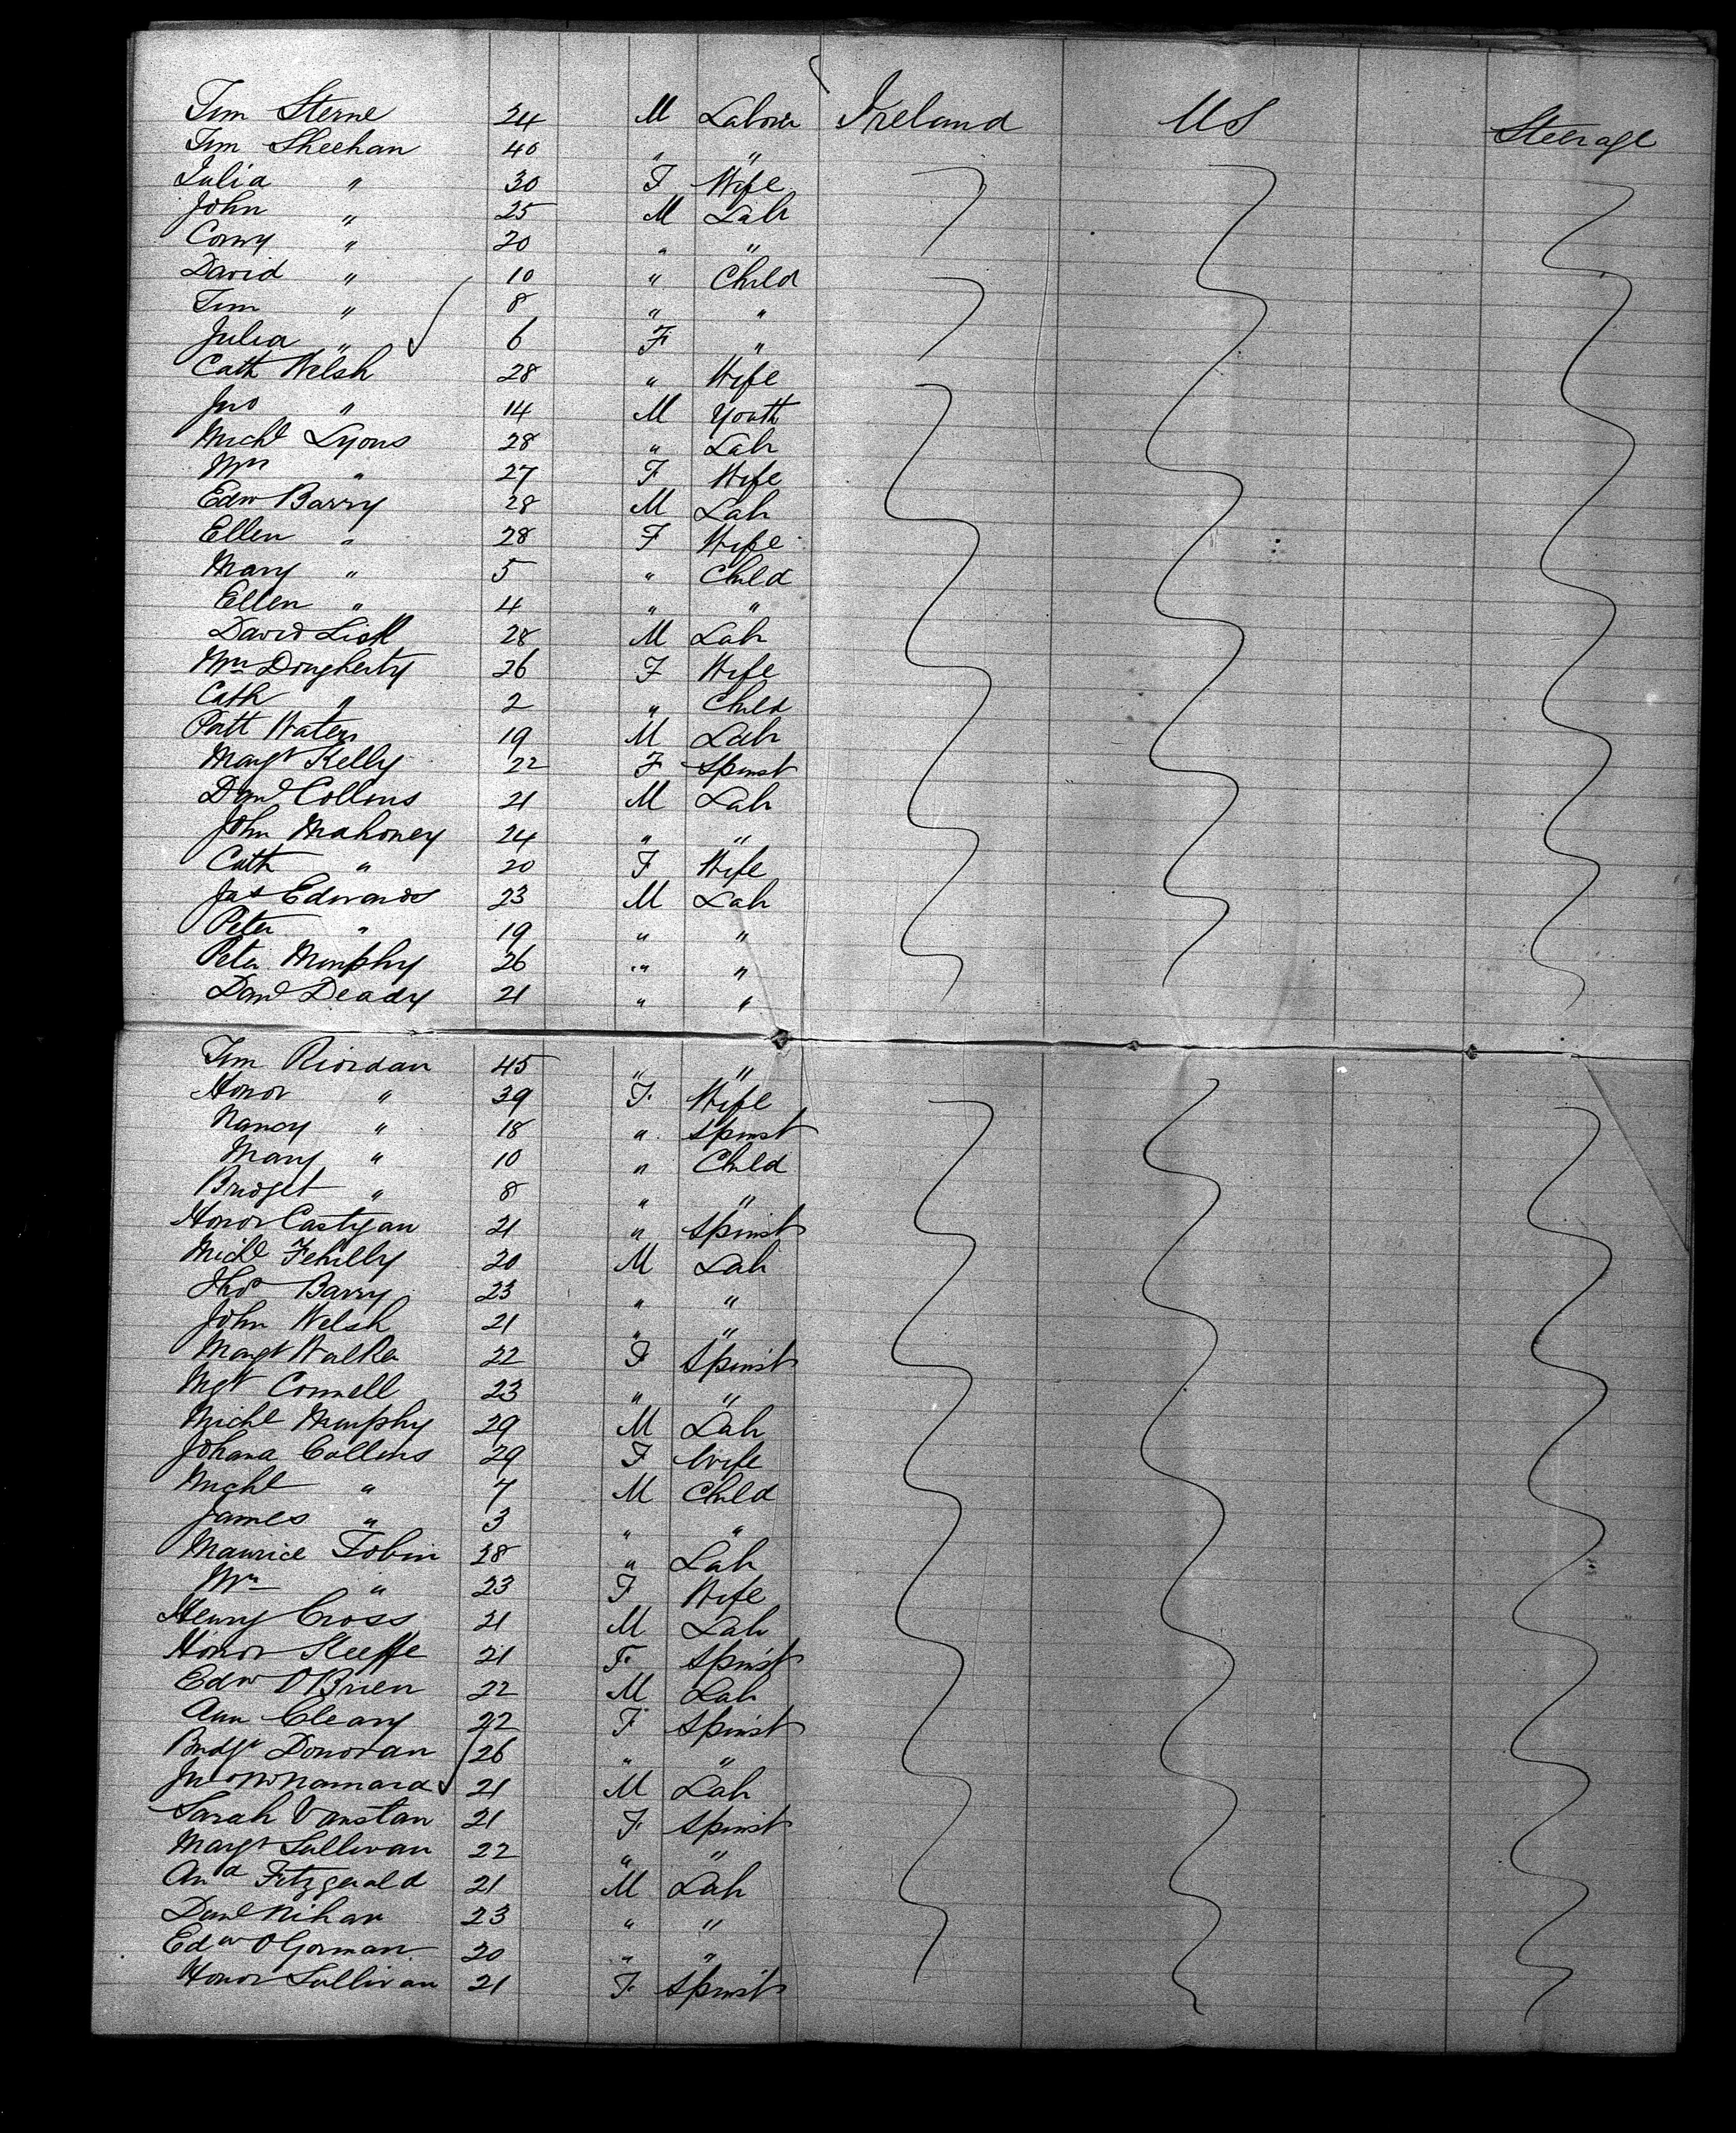 Tim Sterne 24 M Labour Ireland US Steerage
Tim Sheehan 40 " "
Julia " 30 F Wife
John " 25 M Lab
Corny " 20 " "
David " 10 " Child
Tim " 8 " "
Julia " 6 F "
Cath Welsh 28 " Wife
Jno " 14 M Youth
Michl Lyons 28 " Lab
Mrs " 27 F Wife
Edw Barry 28 M Lab
Ellen " 28 F Wife
Mary " 5 " Child
Ellen " 4 " "
David 28 M Lab
Mrs Dougherty 26 F Wife
Cath " 2 " Child
Patt Waters 19 M Lab
Margt Kelly 22 F Spinst
Danl Collins 21 M Lab
John Mahoney 24 " "
Cath " 20 F Wife
Jas Edwards 23 M Lab
Peter " 19 " "
Peter Murphy 26 " "
Danl Deady 21 " "
Tim Riordan 45 " "
Honor " 39 F Wife
Nancy " 18 " Spinst
Mary " 10 " Child
Bridget " 8 " "
Honor Castigan 21 " Spinst
Michl Fehilly 20 M Lab
Thos Barry 23 " "
John Welsh 21 " "
Margt Walker 22 F Spinst
Mgt Connell 23 " "
Michl Murphy 29 M Lab
Johana Collins 29 F Wife
Michl " 7 M Child
James " 3 " "
Maurice Tobin 28 " Lab
Mrs " 23 F Wife
Henry Cross 21 M Lab
Honor Keeffe 21 F Spinst
Edw O'Brien 22 M Lab
Ann Cleary 22 F Spinst
Bridgt Donovan 26 " "
Jno McNamara 21 M Lab
Sarah Vanstan 21 F Spinst
Margt Sullivan 22 " "
And Fitzgerald 21 M Lab
Danl Nihan 23 " "
Edw O'Gorman 20 " "
Honor Sullivan 21 F Spinst